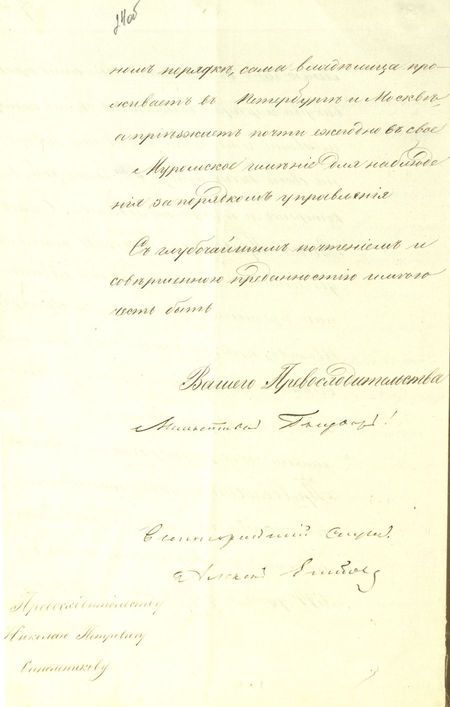 24об
номъ порядкѣ, сама владѣлица про-
живаетъ въ Петербургѣ и Москвѣ,
а пріѣзжаетъ почти ежегодно въ свое
Муромское имѣніе для наблюде
нія за порядкомъ управленія
Съ глубочайшимъ почтеніемъ и
совѣршенною преданностію имѣю
честь быть
Вашего Превосходительства
Милостивый Государь!
Алексѣй
Превосходительству
Николаю Петровичу
Синельникову